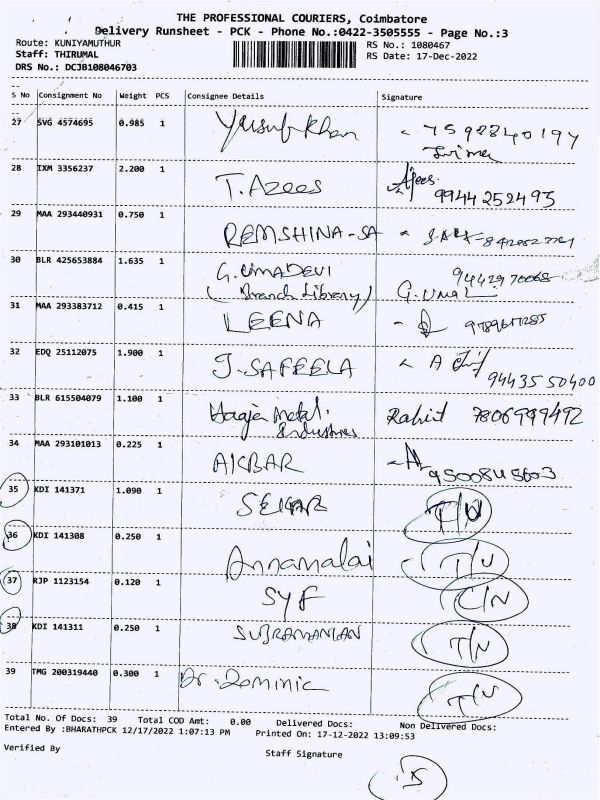 THE PROFESSIONAL COURIERS, Coimbatore
Delivery Runsheet - PCK - Phone No.:0422-3505555 - Page No.:3
Route: KUNIYAMUTHUR
RS No.: 1080467
Staff: THIRUMAL
RS Date: 17-Dec-2022
DRS No.: DCJB108046703
S No Consignment No Weight PCS Consignee Details Signature
27 SVG 4574695 0.985 1 Yusuf Khan 7598840197
28 IXM 3356237 2.200 1 T.Azees Ajees 9944252493
29 MAA 293440931 0.750 1 REMSHINA-SA
30 BLR 425653884 1.635 1 G.UMADEVI 9442970068
(Branch Library) G.Uma
31 MAA 293383712 0.415 1 LEENA
32 EDQ 25112075 1.900 1 J.SAFEELA
9443550400
33 BLR 615504079 1.100 1 Haaja Metal. 7806999492
Industries
34 MAA 293101013 0.225 1 AKBAR 9500845603
35 KDI 141371 1.090 1 SEKAR
36 KDI 141308 0.250 1 Annamalai T/N
37 RJP 1123154 0.120 1 SYF
38 KDI 141311 0.250 1 SUBRAMANIAN T/N
39 TMG 200319440 0.300 1 Dr. Dominic T/N
Total No. Of Docs: 39 Total COD Amt: 0.00 Delivered Docs: Non Delivered Docs:
Entered By :BHARATHPCK 12/17/2022 1:07:13 PM Printed On: 17-12-2022 13:09:53
Verified By Staff Signature